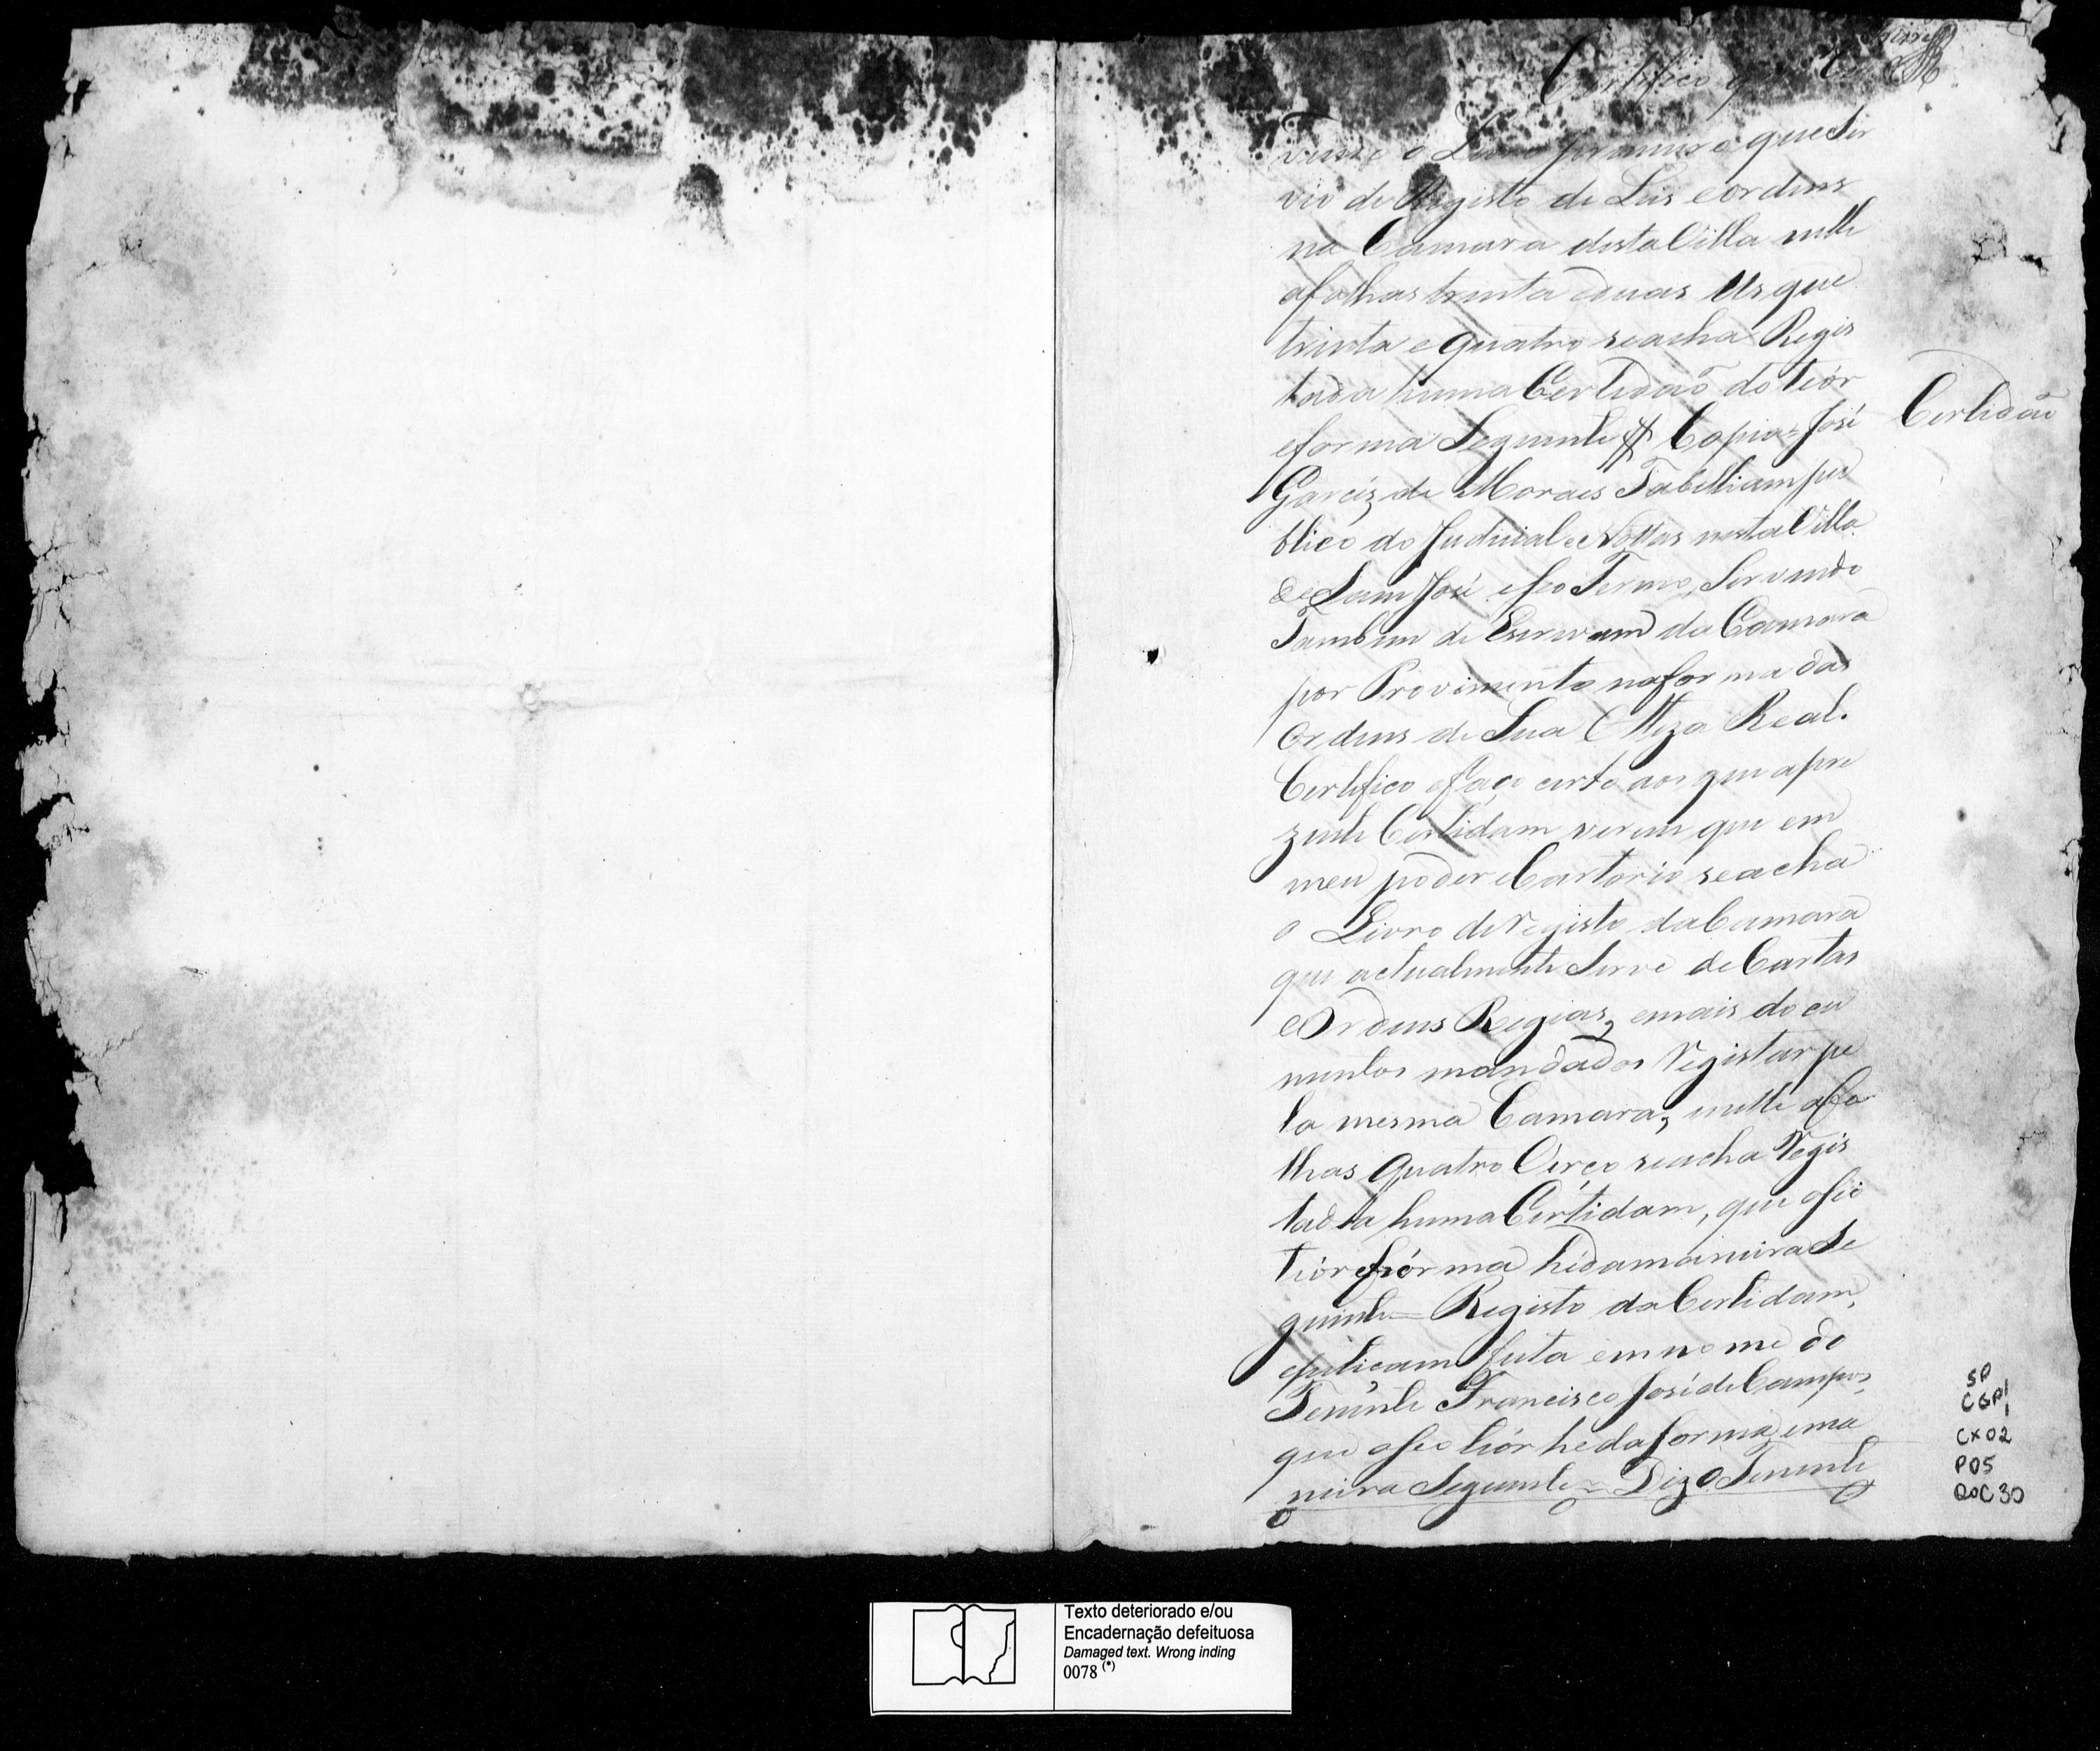 Certifico que
o Livro primeiro que Ser
vio de Registo de Leis e ordens
na Camara desta Villa nelle
afolhas trinta eduas Usque
trinta e quatro seacha Regis
tada huma Certidaõ do teór
eforma Seguinte Copia = José
Garcéz de Moraes Tabelliam pu
blico do Judicial e Nottas nesta Villa
de Sam José eseo Termo, Servindo
Tambem de Escrivam da Camara
por Provimento naforma das
Ordens de Sua Alteza Real.
Certifico efaço certo aos que apre
zente Certidam virem que em
meu poder eCartorio seacha
o Livro deRegisto daCamara
que actualmente Serve de Cartas
eOrdens Regias, emais docu
mentos mandados Registar pe
la mesma Camara, enelle afo
lhas quatro Verço seacha Regis
tada huma Certidam, que oseo
teór efórma hédamaneira Se
guinte = Registo da Certidam,
epeticam feita em nome do
Tenente Francisco José de Campos,
que oseo teór hé da forma, ema
neira Seguinte = Diz o Tenente
Certidão
SP
CGP1
CX02
P05
DOC30
Texto deteriorado e/ou
Encadernação defeituosa
Damaged text. Wrong inding
0078 (*)